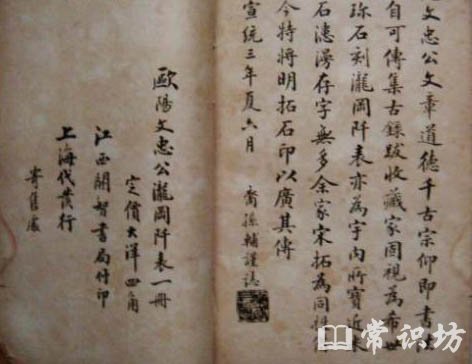 文忠公文章道德千古宗仰即書
自可傳集古錄跋收藏家固視為希世
珍石刻瀧岡阡表亦為宇內所寶近
石漶漫存字無多余家宋拓為同
今特將明拓石印以廣其傳
宣統三年夏六月 裔孫輔謹誌
歐陽文忠公瀧岡阡表一冊
定價大洋四角
江西開智書局付印
上海代發行
寄售處
常识坊